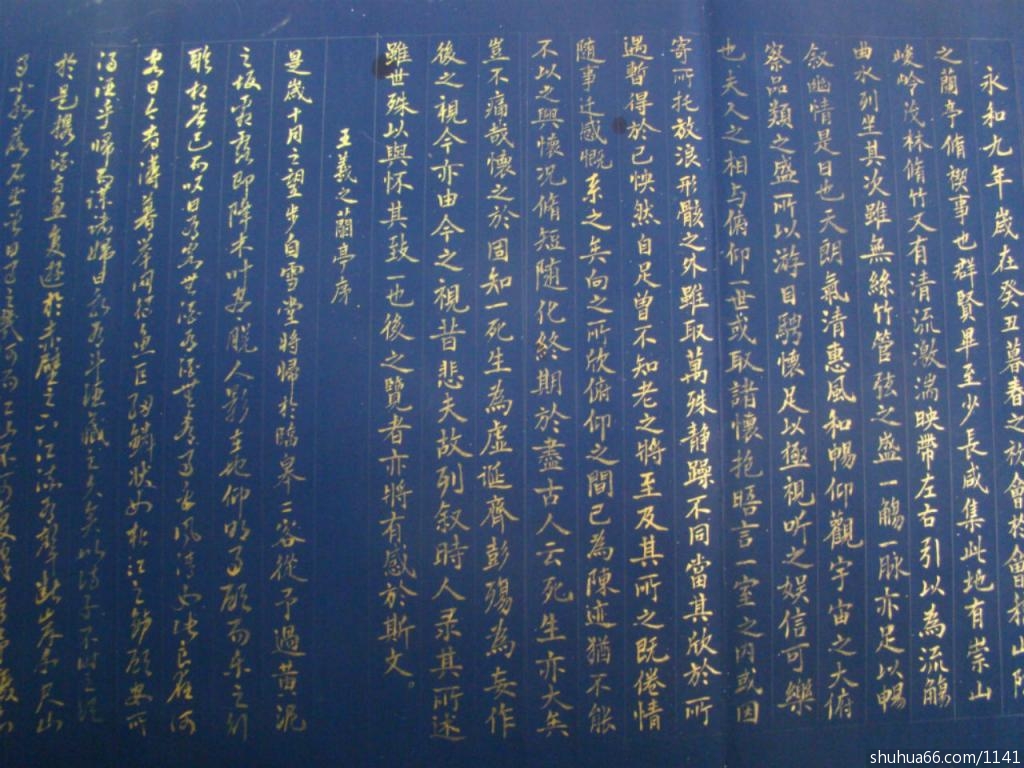 永和九年歲在癸丑暮春之初會於會稽山陰
之蘭亭脩禊事也群賢畢至少長咸集此地有崇山
峻岭茂林脩竹又有清流激湍映帶左右引以為流觴
曲水列坐其次雖無絲竹管弦之盛一觴一脉亦足以暢
敘幽情是日也天朗氣清惠風和暢仰觀宇宙之大俯
察品類之盛所以游目騁懷足以極視听之娱信可樂
也夫人之相与俯仰一世或取諸懷抱晤言一室之内或因
寄所托放浪形骸之外雖取萬殊静躁不同當其欣於所
遇暫得於己怏然自足曾不知老之將至及其所之既倦情
随事迁感慨系之矣向之所欣俯仰之間已為陳迹猶不能
不以之興懷况脩短随化終期於盡古人云死生亦大矣
豈不痛哉懷之於固知一死生為虚诞齊彭殤為妄作
後之視今亦由今之視昔悲夫故列敘時人录其所述
雖世殊以與怀其致一也後之覽者亦將有感於斯文。
王羲之蘭亭序
是歲十月之望步自雪堂將歸於臨皋二客從予過黄泥
之坂霜露即降木叶尽脱人影在地仰明月顧而乐之行
歌相答已而以曰有客無酒有酒無肴月白風清如此良夜何
客曰今者薄暮举网得魚巨细鳞狀如松江之鲈顧安所
得酒乎歸而謀诸婦曰我有斗酒藏之久矣以待子不时之
於是携酒与鱼复遊於赤壁之下江流有聲断岸千尺山
高月小水落石出曾日月之幾何而江山不可復